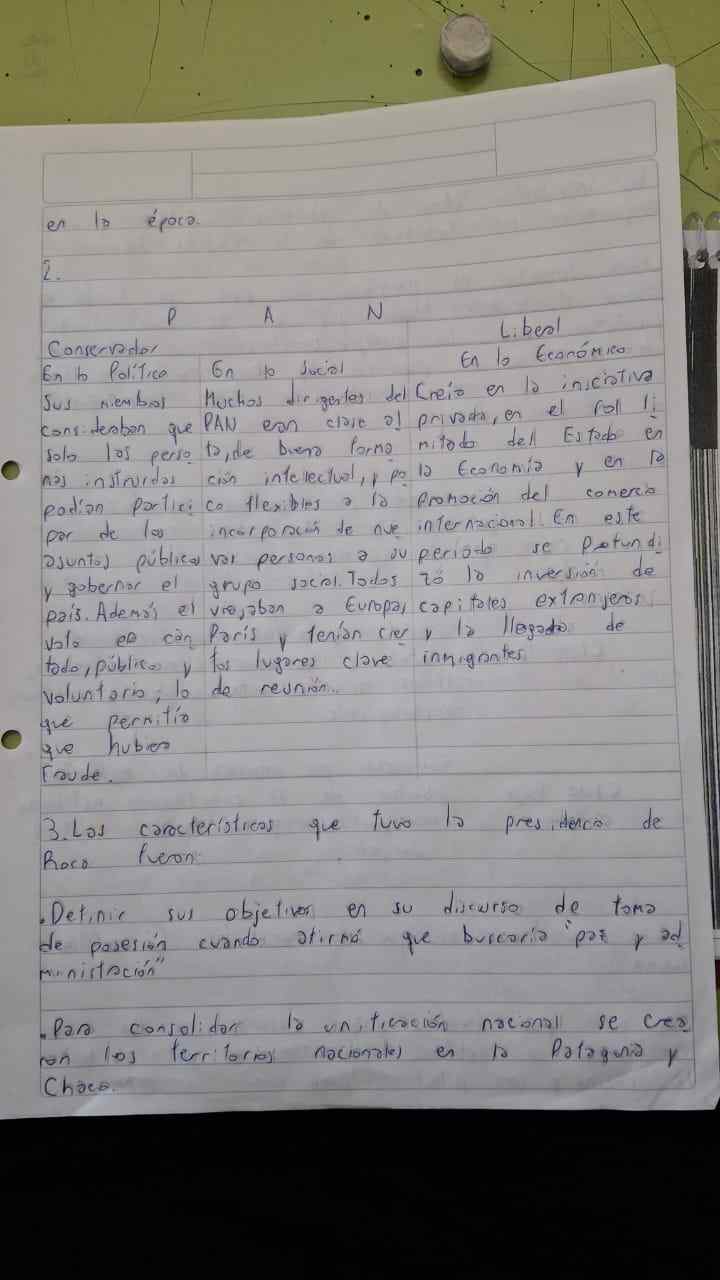 en la época.
2.
P A N
Conservador
Liberal
En lo Político
Sus miembros
consideraban que
solo las perso
nas instruidas
podían partici
par de los
asuntos públicos
y gobernar el
país. Además el
voto era can
tado, público y
voluntario; lo
que permitío
que hubiera
fraude.
En lo social
Muchos dirigentes del
PAN eran clase al
ta, de buena forma
ción intelectual, y po
co flexibles a la
incorporación de nue
vas personas a su
grupo social. Todos
viajaban a Europa,
París y tenían cier
tos lugares clave
de reunión.
En lo Económico
Creía en la iniciativa
privada, en el roll li
mitado del Estado en
la Economía y en la
promoción del comercio
internacional. En este
período se Profundi
zó la inversión de
capitales extranjeros
y la llegada de
inmigrantes
3. Las características que tuvo la presidencia de
Roca fueron:
. Definir sus objetivos en su discurso de toma
de posesión cuando afirmó que buscaría "paz y ad
ministración"
. Para consolidar la unificación nacional se crea
ron los territorios nacionales en la Patagonia y
Chaco.